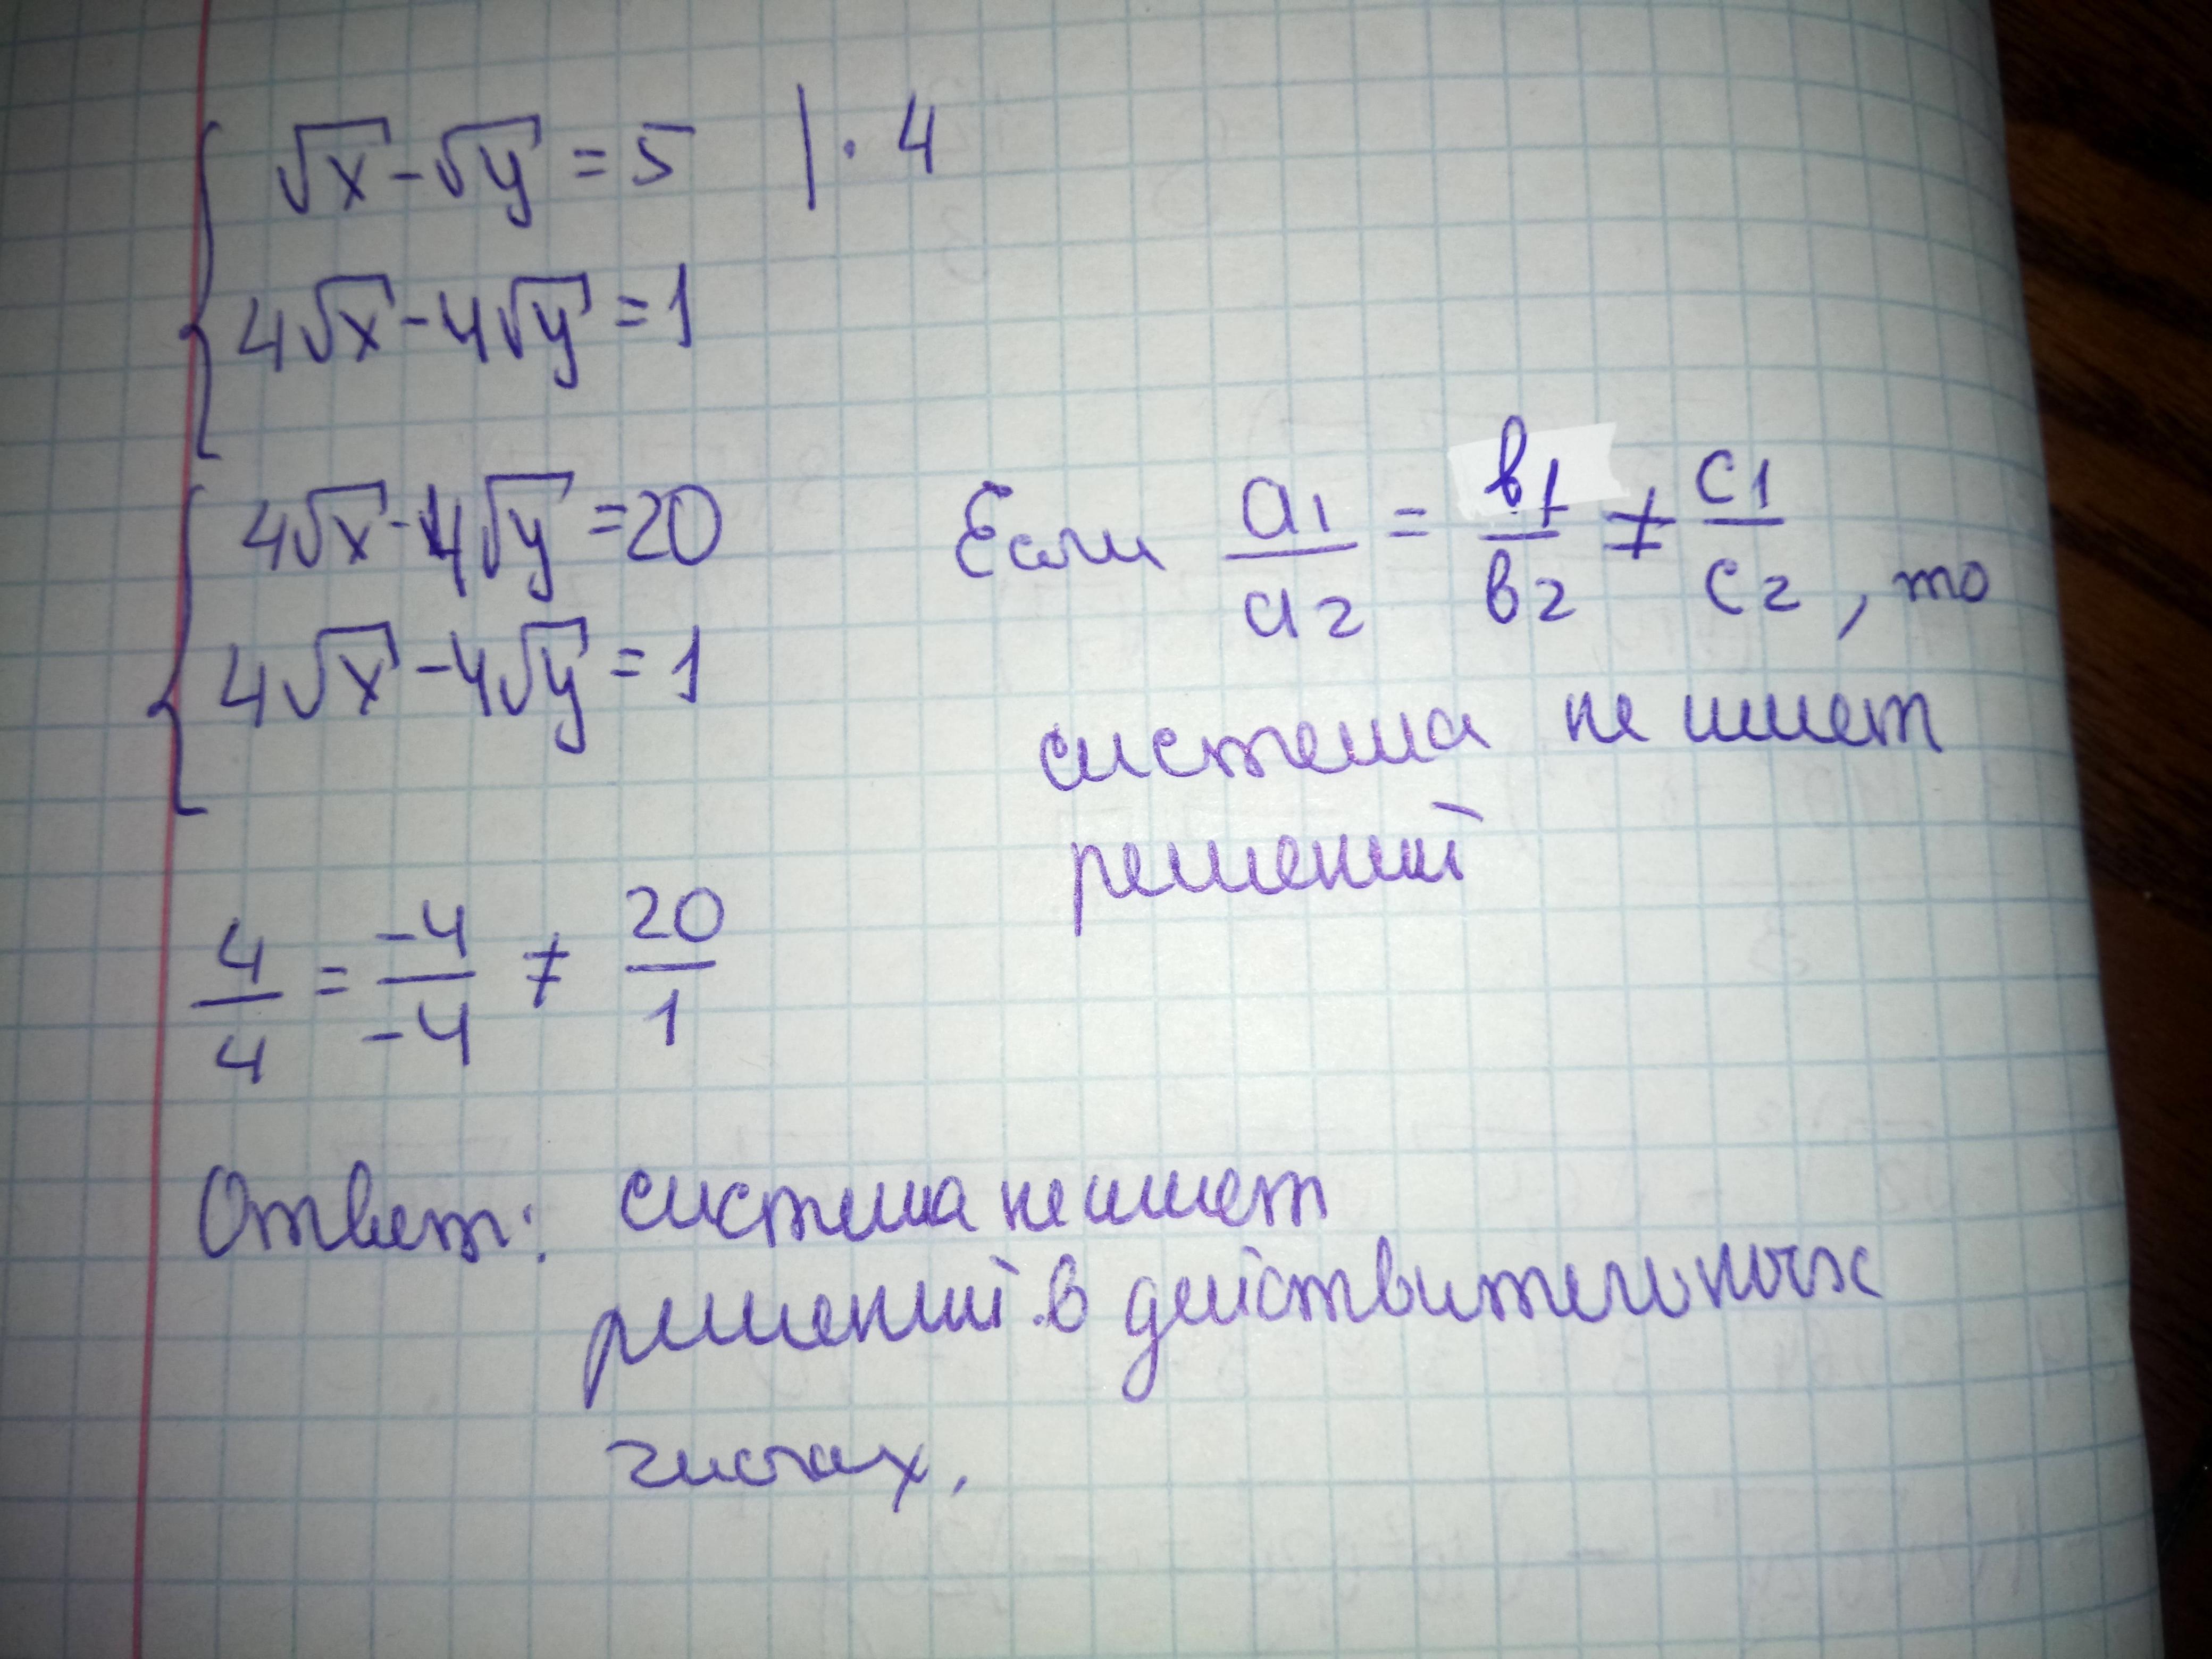 √x - √y = 5 | · 4
4√x - 4√y = 1
4√x - 4√y = 20
4√x - 4√y = 1
Если a1/a2 = b1/b2 ≠ c1/c2, то
система не имеет
решений
4/4 = -4/-4 ≠ 20/1
Ответ: система не имеет
решений в действительных
числах.